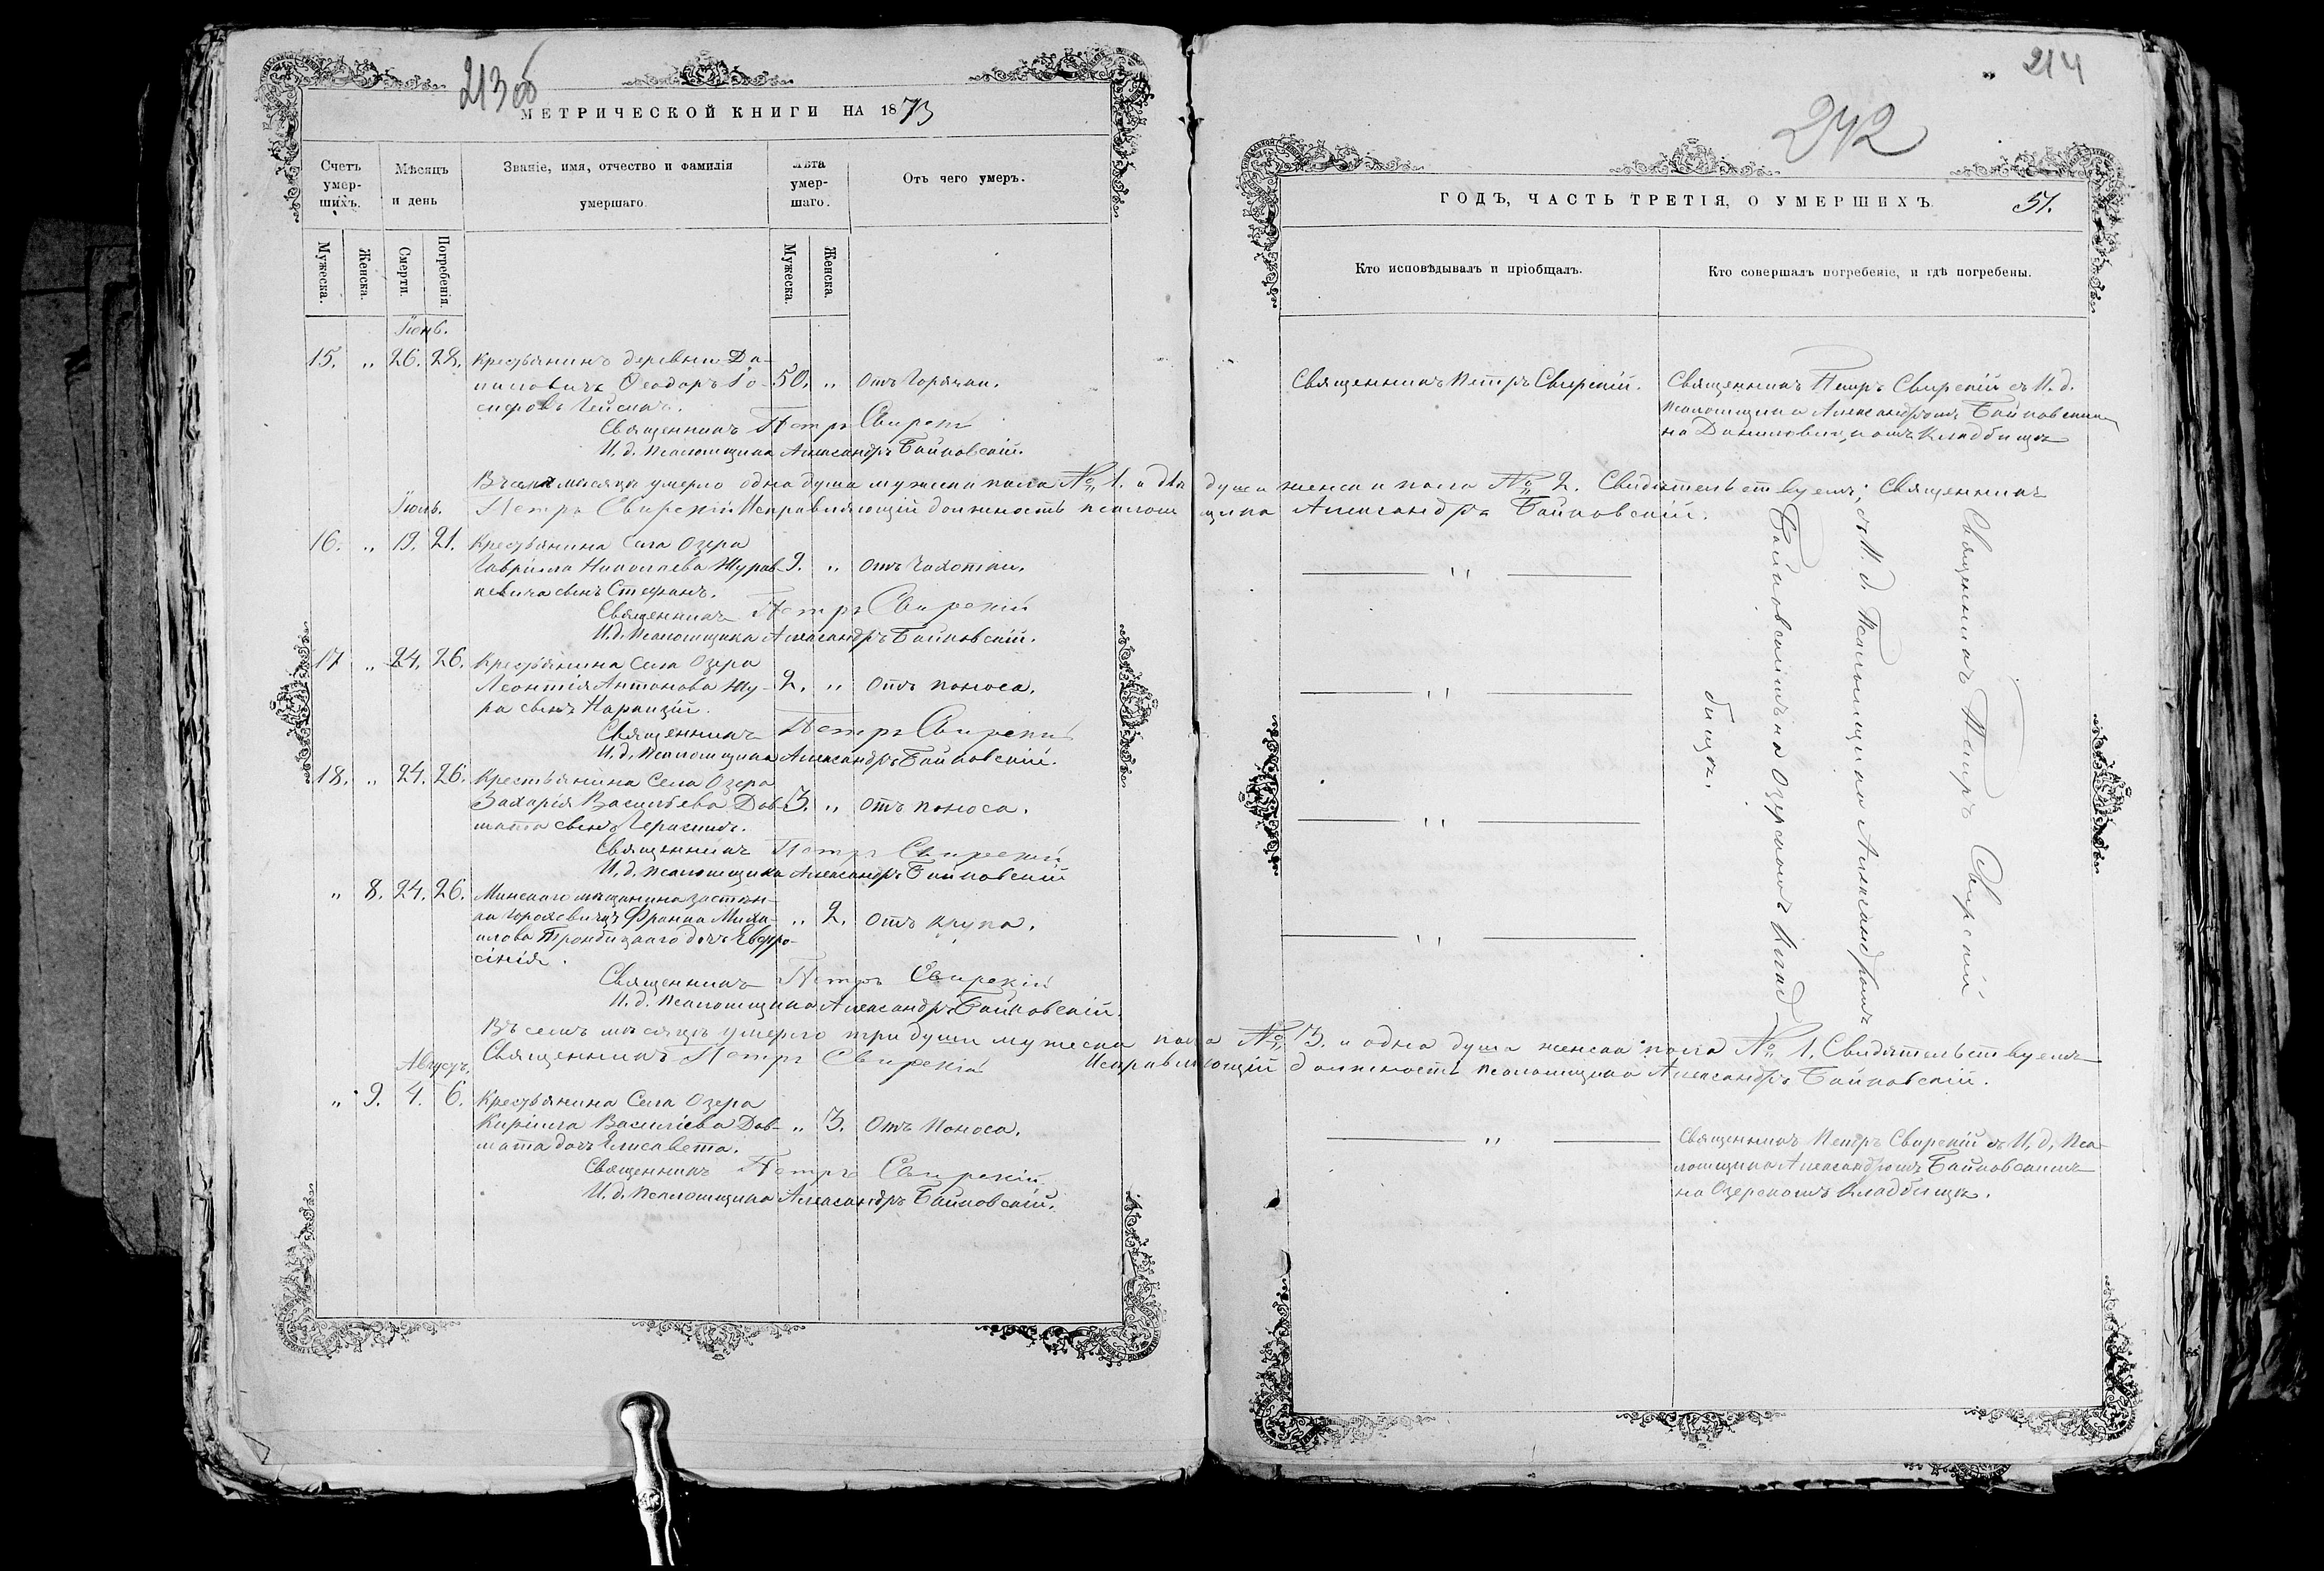 213об
МЕТРИЧЕСКОЙ КНИГИ НА 1873
Счетъ умер-шихъ.
Мѣсяцъ и день
Званіе, имя, отчество и фамилія умершаго.
Лѣта умер-шаго.
Отъ чего умеръ.
Мужеска.
Женска.
Смерти.
Погребенія.
Мужеска.
Женска.
Іюнь.
15. „ 26. 28. Крестьянинъ деревни Да-
ниловичъ Ѳеодоръ Іо- 50. „ Отъ горячки.
сифовъ
Священникъ Петръ Свирскій
И. д. псаломщика Александръ Байковскій.
Въ семъ мѣсяцѣ умерло одна душа мужеска пола № 1. и двѣ души женска пола № 2. Свидѣтельствуемъ: Священникъ
Петръ Свирскій Исправляющій должность псаломщика Александръ Байковскій.
Іюль.
16. „ 19. 21. Крестьянина Села Озера
Гавріила Николаева Журав- 9. „ Отъ чахотки.
левича сынъ Стефанъ.
Священникъ Петръ Свирскій
И. д. псаломщика Александръ Байковскій.
17 „ 24. 26. Крестьянина Села Озера
Леонтія Антонова Жу- 2. „ Отъ поноса.
ра сынъ
Священникъ Петръ Свирскій
И. д. псаломщика Александръ Байковскій.
18. „ 24. 26. Крестьянина Села Озера
Захарія Васильева Дов- 3. „ Отъ поноса.
ната сынъ Герасимъ.
Священникъ Петръ Свирскій
И. д. псаломщика Александръ Байковскій
„ 8. 24. 26. Минскаго мѣщанина застѣн-
ка Франка Миха- „ 2. Отъ крупа.
илова дочь Евфро-
сінія.
Священникъ Петръ Свирскій
И. д. псаломщика Александръ Байковскій.
Въ семъ мѣсяцѣ умерло три души мужеска пола № 3. и одна душа женска пола № 1. Свидѣтельствуемъ
Священникъ Петръ Свирскій Исправляющій должность псаломщика Александръ Байковскій.
Августъ.
„ 9. 4. 6. Крестьянина Села Озера
Кирилла Васильева Дов- „ 3. Отъ поноса.
ната дочь Елисавета.
Священникъ Петръ Свирскій
И. д. псаломщика Александръ Байковскій.
214
242
ГОДЪ, ЧАСТЬ ТРЕТІЯ, О УМЕРШИХЪ.
51.
Кто исповѣдывалъ и пріобщалъ.
Кто совершалъ погребеніе, и гдѣ погребены.
Священникъ Петръ Свирскій.
Священникъ Петръ Свирскій съ И. д.
псаломщика Александромъ Байковскимъ
на кладбищѣ
Священникъ Петръ Свирскій
съ И. д. Псаломщика Александромъ
Байковскимъ на Озерскомъ клад-
бищѣ.
Священникъ Петръ Свирскій съ И. д. Пса-
ломщика Александромъ Байковскимъ
на Озерскомъ кладбищѣ.